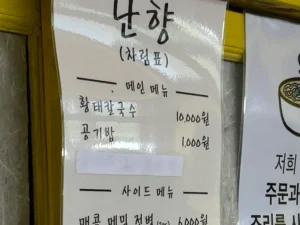 난향
(차림표)
메인 메뉴
황태칼국수 10,000원
공기밥 1,000원
사이드 메뉴
매콤 메밀 전병 6,000원
저희
주문과
조리를 시